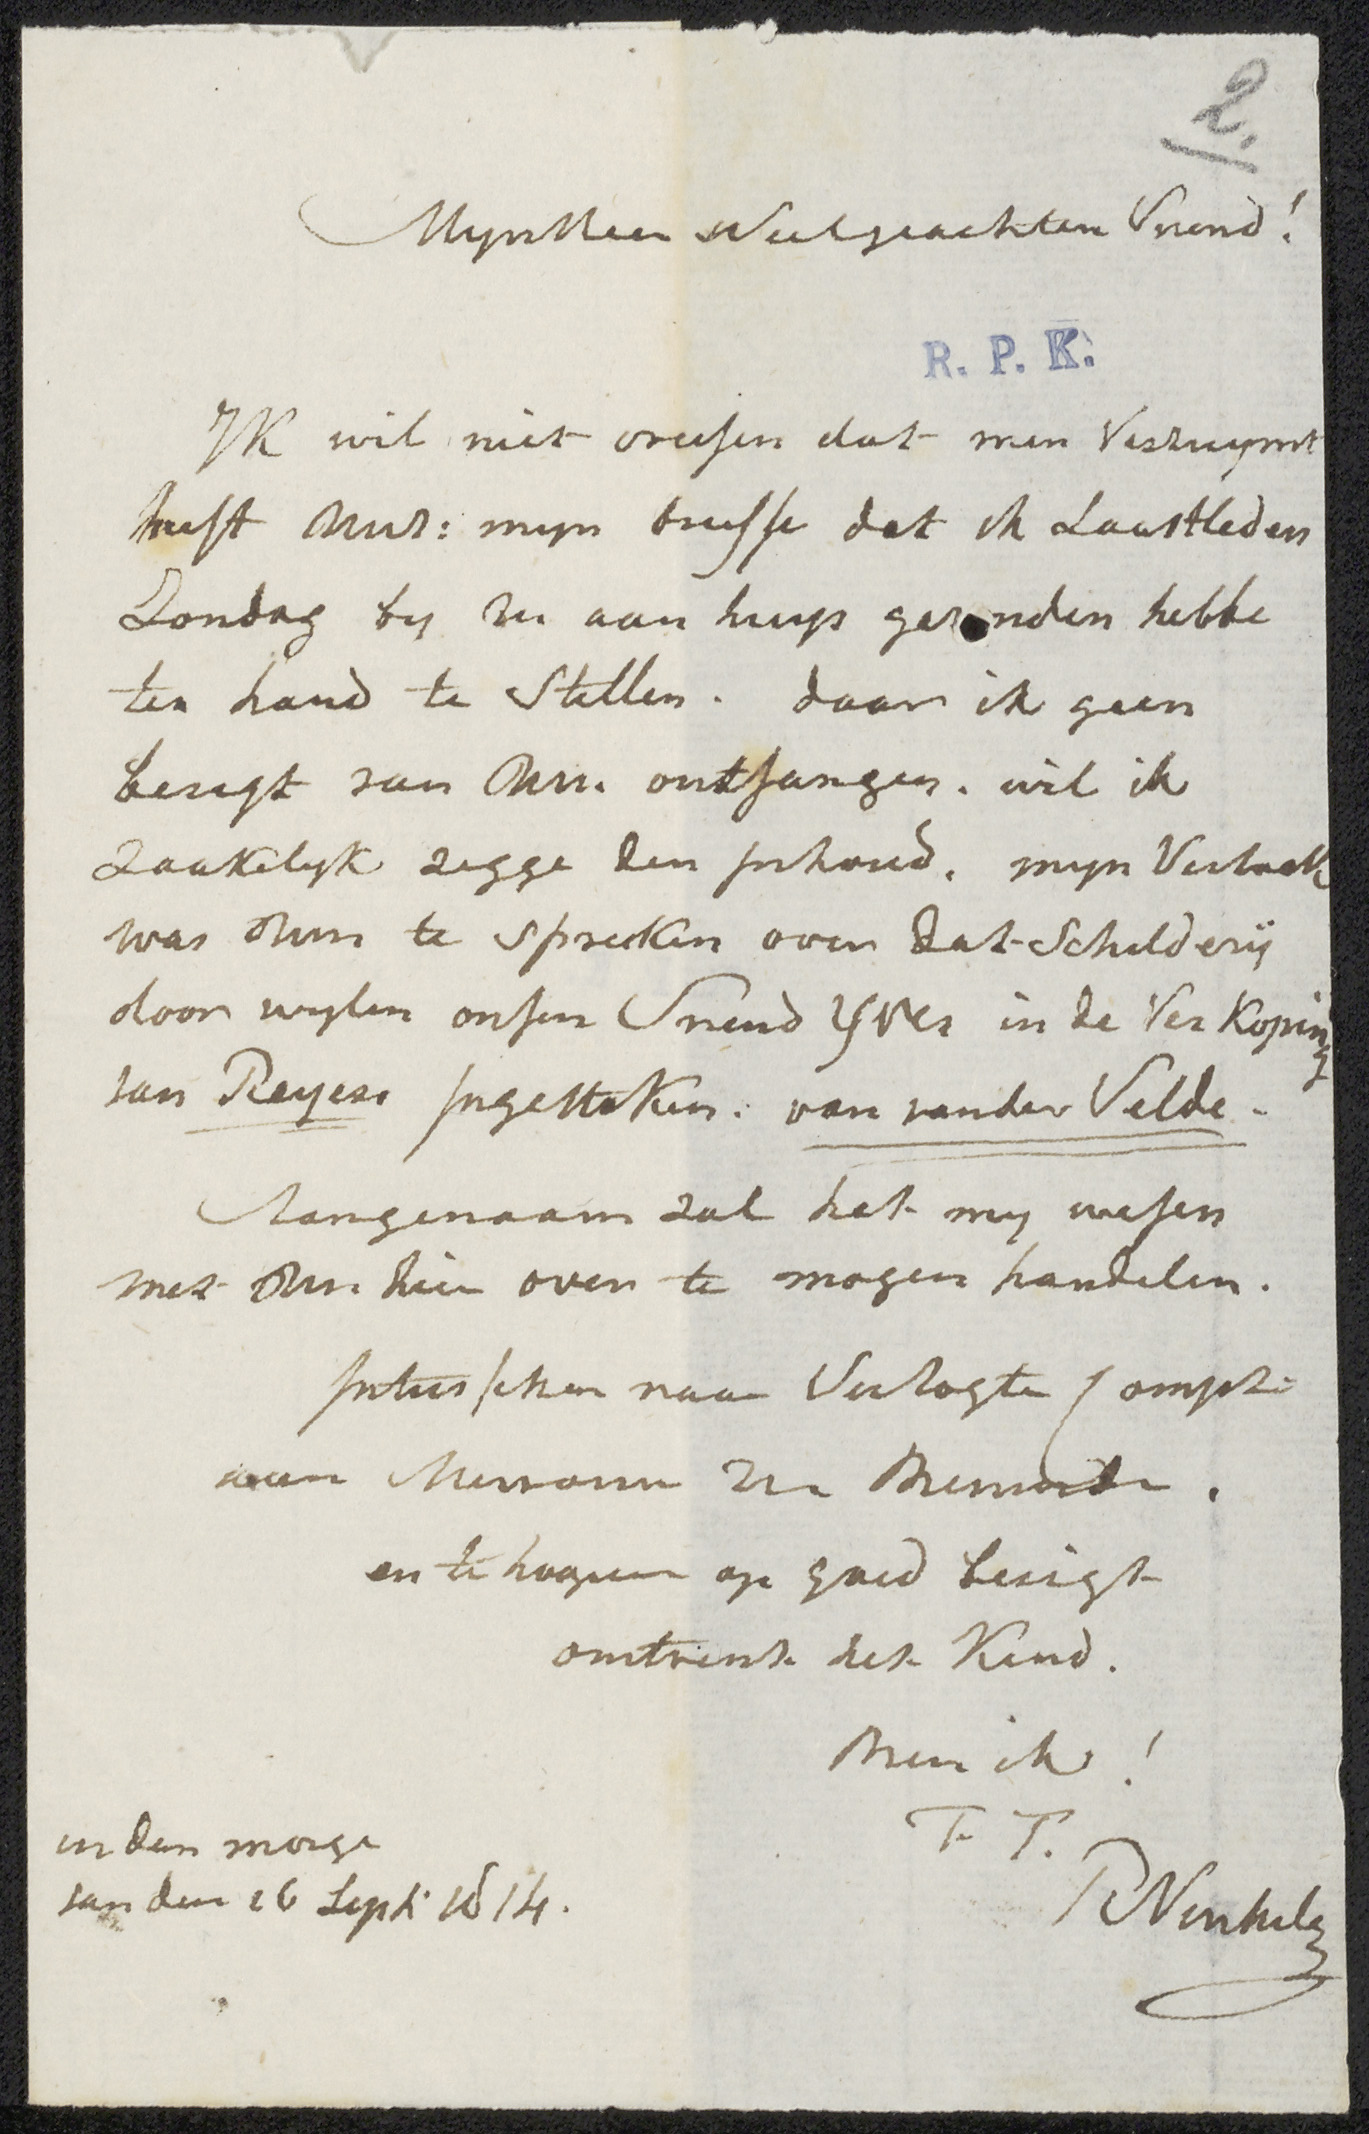 2.
Mynheer Veelgeachten Vriend!
R. P. K.
Ik wil niet vreesen dat men Verzuymt
heeft mijn briefje dat ik Laastleden
Zondag by uw aan huys gezonden hebbe
ter hand te Stellen. daar ik geen
berigt van ontfangen. wil ik
Zaakelyk zegge den Inhoud. myn Verloek
was te spreeken over dat Schilderij
door wylen onsen Vriend Yver in de Verkoping
van Reyers Ingesteken. van vander Velde.
Aangenaam zal het my wesen
met hier over te mogen handelen.
Intusschen naar Verzogte Compt:
aan Mevrouw uw Beminde.
en te hoopen op goed berigt
omtrent het Kind.
Ben ik!
T. T.
R Vinkeles
in den morge
van den 16 Sept. 1814.